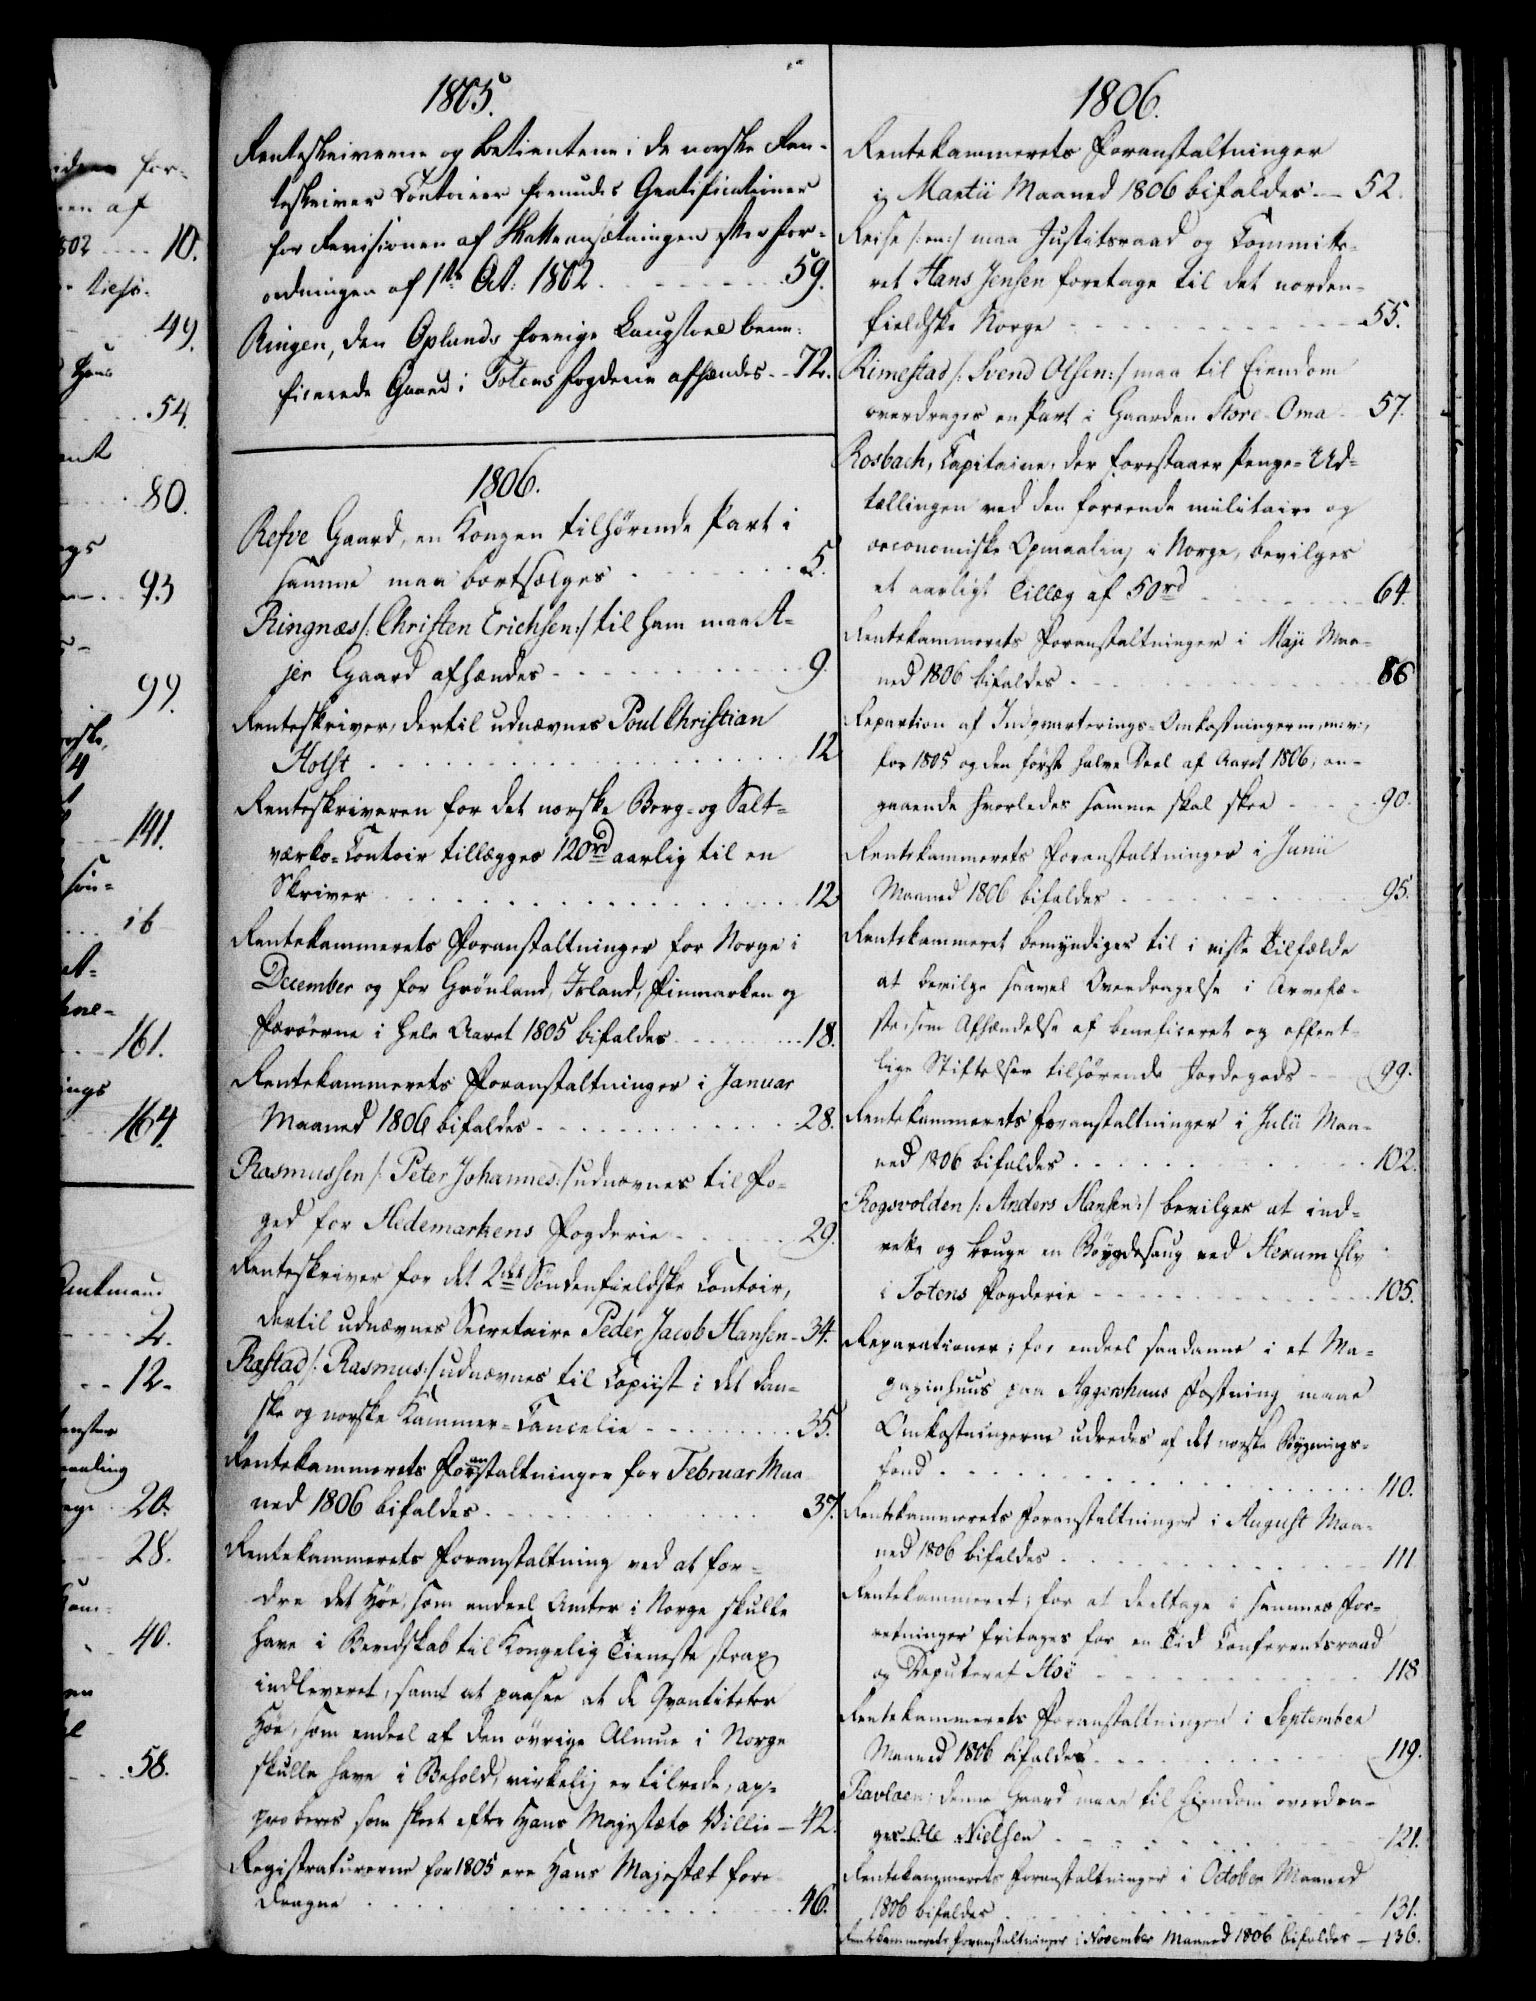 idere for-
een af
802 10.
49.
Hans
54.
80.
93
99.
4
141.
16
161.
ings
164.
Amtmand
2.
12.
20.
28.
40.
58.
1805.
Renteskriverne og Betientene i de norske Ren-
teskriver Contoirer forundes Gratificationer
for Revisionen af Skatteansætningen efter For-
ordningen af 1ste Oct: 1802 59.
Ringen, den Oplands forrige Laugstoel bene-
ficerede Gaard i Totens Fogderie afhændes 72.
1806.
Refve Gaard, en Kongen tilhørende Part i
samme maa bortsælges 5.
Ringnæs /: Christen Erichsen:/ til ham maa A-
jer Gaard afhændes 9.
Renteskriver, dertil udnævnes Poul Christian
Holst 12
Renteskriveren for det norske Berg- og Salt-
værks-Contoir tillægges 120rd aarlig til en
Skriver 12
Rentekammerets Foranstaltninger for Norge i
December og for Grønland, Island, Finmarken og
Færöerne i hele Aaret 1805 bifaldes 18.
Rentekammerets Foranstaltninger i Januar
Maaned 1806 bifaldes 28.
Rasmussen /: Peter Johannes:/ udnævnes til Fo-
ged for Hedemarkens Fogderie 29.
Renteskriver for det 2det Søndenfieldske Contoir,
dertil udnævnes Secretaire Peder Jacob Hansen 34.
Ræstad /: Rasmus:/ udnævnes til Copiist i det dan-
ske og norske Kammer-Cancelie 35.
Rentekammerets Foranstaltninger for Februar Maa-
ned 1806 bifaldes 37.
Rentekammerets Foranstaltning ved at for-
dre det Høe, som endeel Amter i Norge skulle
have i Beredskab til Kongelig Tieneste strax
indleveret, samt at paasee at de Qvantiteter
Høe, som endeel af den øvrige Almue i Norge
skulle have i Behold, virkelig er tilrede, ap-
proberes som skeet efter Hans Majestæts Villie 42.
Registraturerne for 1805 ere Hans Majestæt fore-
dragne 46.
1806.
Rentekammerets Foranstaltninger
i Martii Maaned 1806 bifaldes 52.
Reise /: en:/ maa Justitsraad og Committe-
ret Hans Jensen foretage til det norden-
fieldske Norge 55.
Rimestad /: Svend Olsen:/ maa til Eiendom
overdrages en Part i Gaarden Store-Oma 57.
Rosbach, Capitaine, der forestaaer Penge-Ud-
tællingen ved den foreende militaire og
oeconomiske Opmaaling i Norge, bevilges
et aarligt Tillæg af 50rd 64.
Rentekammerets Foranstaltninger i Maji Maa-
ned 1806 bifaldes 86
Repartion af Indqvarterings-Omkostningerne, m: v:,
for 1805 og den første halve Deel af Aaret 1806, an-
gaaende hvorledes samme skal skee 90.
Rentekammerets Foranstaltninger i Junii
Maaned 1806 bifaldes 95.
Rentekammeret bemyndiges til i visse Tilfælde
at bevilge saavel Overdragelse i Arvefæ-
ste, som Afhændelse af beneficeret og offent-
lige Stiftelser tilhørende Jordegods 99.
Rentekammerets Foranstaltninger i Julii Maa-
ned 1806 bifaldes 102.
Rogsvolden /: Anders Hansen:/ bevilges at ind-
rette og bruge en Böygdesaug ved Hexum Elv
i Totens Fogderie 105.
Reparationer; for endeel saadanne i et Ma-
gazinhuus paa Aggershuus Fæstning maae
Omkostningerne udredes af det norske Bygnings-
fond 110.
Rentekammerets Foranstaltninger i August Maa-
ned 1806 bifaldes 111
Rentekammeret; for at deeltage i sammes For-
retninger fritages for en Tid Conferentsraad
og Deputeret Hoë 118
Rentekammerets Foranstaltninger i September
Maaned 1806 bifaldes 119.
Ravloen; denne Gaard maae til Eiendom overdra-
ges Ole Nielsen 121.
Rentekammerets Foranstaltninger i October Maaned
1806 bifaldes 131.
Rentekammerets Foranstaltninger i November Maaned 1806 bifaldes 136.